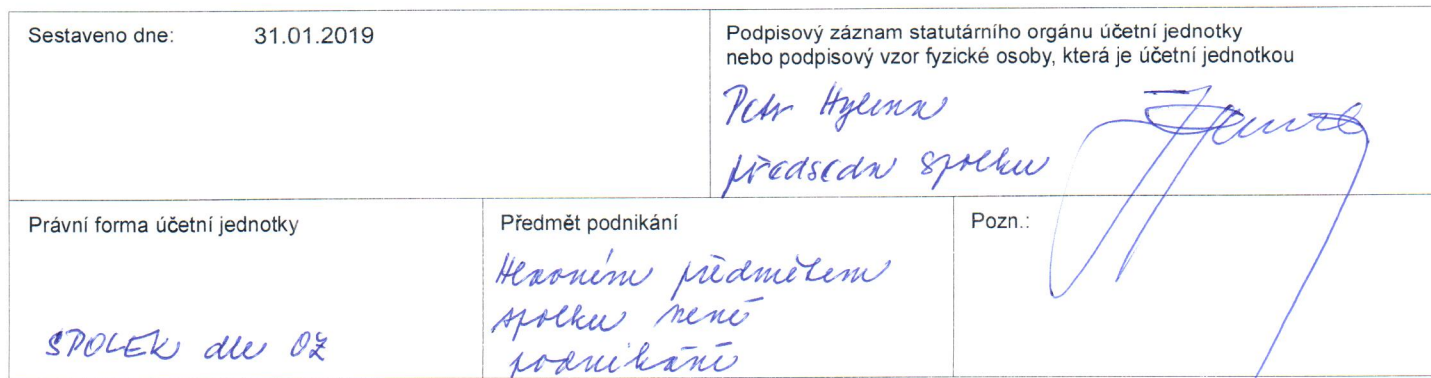 Sestaveno dne: 31.01.2019
Podpisový záznam statutárního orgánu účetní jednotky
nebo podpisový vzor fyzické osoby, která je účetní jednotkou
Petr
předseda spolku
Právní forma účetní jednotky
SPOLEK dle OZ
Předmět podnikání
Hlavním předmětem
spolku není
podnikání
Pozn.: